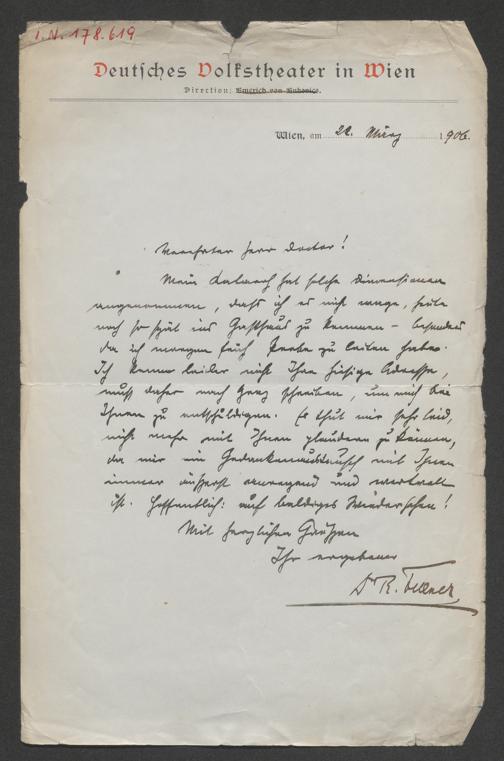 I.N. 178.619
Deutsches Volkstheater in Wien
Direction: Emerich von Bukovics.
Wien, am 22. März 1906.
Verehrter Herr Doctor!
Mein Katarrh hat solche Dimensionen
angenommen, dass ich es nicht wage, heute
noch so spät ins Gasthaus zu kommen – besonders
da ich morgen früh Probe zu leiten habe.
Ich kenne leider nicht Ihre hiesige Adresse,
muss daher nach Graz schreiben, um mich bei
Ihnen zu entschuldigen. Es thut mir sehr leid,
nicht mehr mit Ihnen plaudern zu können,
da mir ein Gedankenaustausch mit Ihnen
immer äusserst anregend und wertvoll
ist. Hoffentlich: auf baldiges Wiedersehen!
Mit herzlichen Grüssen
Ihr ergebener
Dr R. Fellner